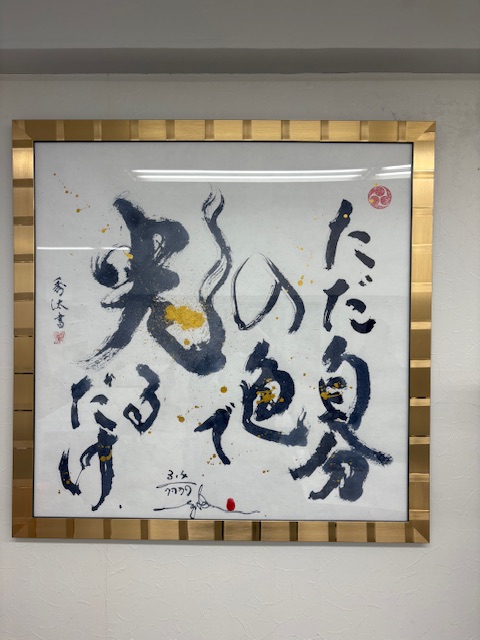 ただ自分
の色で
光るだけ
秀汰書